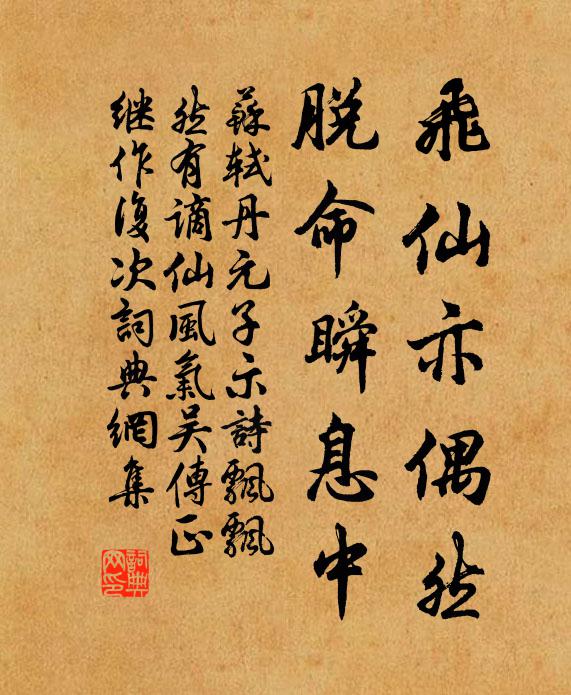 飛仙亦偶然
脱命瞬息中
蘇軾丹元子示詩飄飄
然有謫仙風氣吴傳正
継作復次詞典網集
詞典
网印